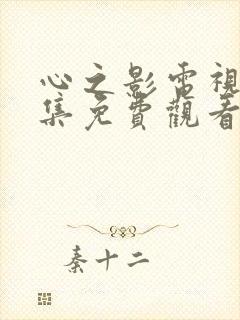 心之影電視
集免費觀看
秦十二